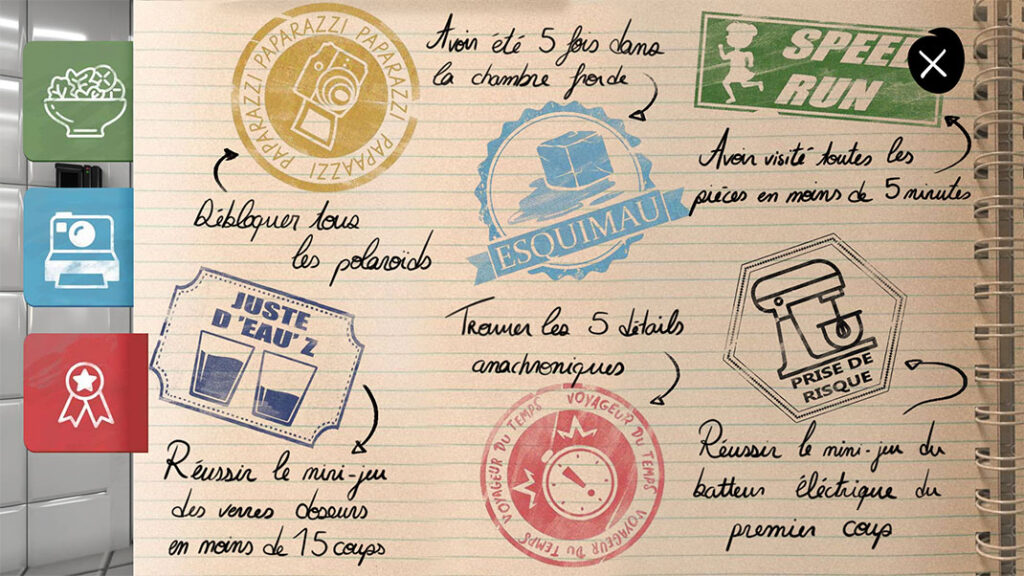 PAPARAZZI PAPARAZZI PAPARAZZI PAPAZZI PAPARAZZI
Débloquer tous
les polaroïds
Avoir été 5 fois dans
la chambre froide
ESQUIMAU
SPEED
RUN
Avoir visité toutes les
pièces en moins de 5 minutes
JUSTE
D'EAU'Z
Réussir le mini-jeu
des verres doseurs
en moins de 15 coups
Trouver les 5 détails
anachroniques
VOYAGEUR DU TEMPS VOYAGEUR DU TEMPS VOYAGEUR DU TEMPS
PRISE DE
RISQUE
Réussir le mini-jeu du
batteur éléctrique du
premier coup